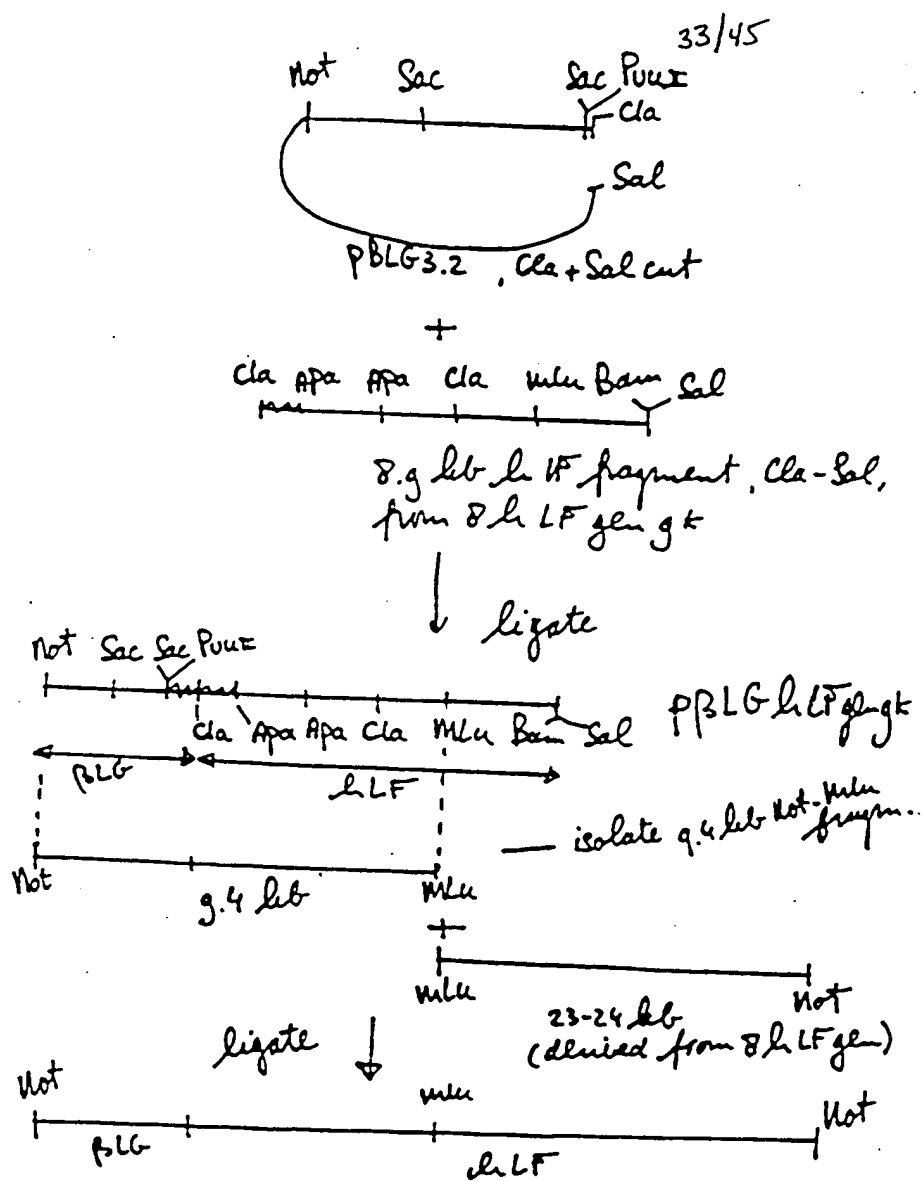 33/45
Not Sac Sac PvuI
Cla
Sal
pBLG3.2, Cla + Sal cut
+
Cla Apa Apa Cla Mlu Bam Sal
8.9 kb hLF fragment, Cla-Sal,
from 8hLFgen9k
ligate
Not Sac Sac PvuI
Cla Apa Apa Cla Mlu Bam Sal pβLGhLFgen9k
βLG hLF
isolate 9.4 kb Not-Mlu
fragm..
Not 9.4 kb Mlu
+
Mlu 23-24 kb Not
(derived from 8hLFgen)
ligate
Not Mlu Not
βLG hLF